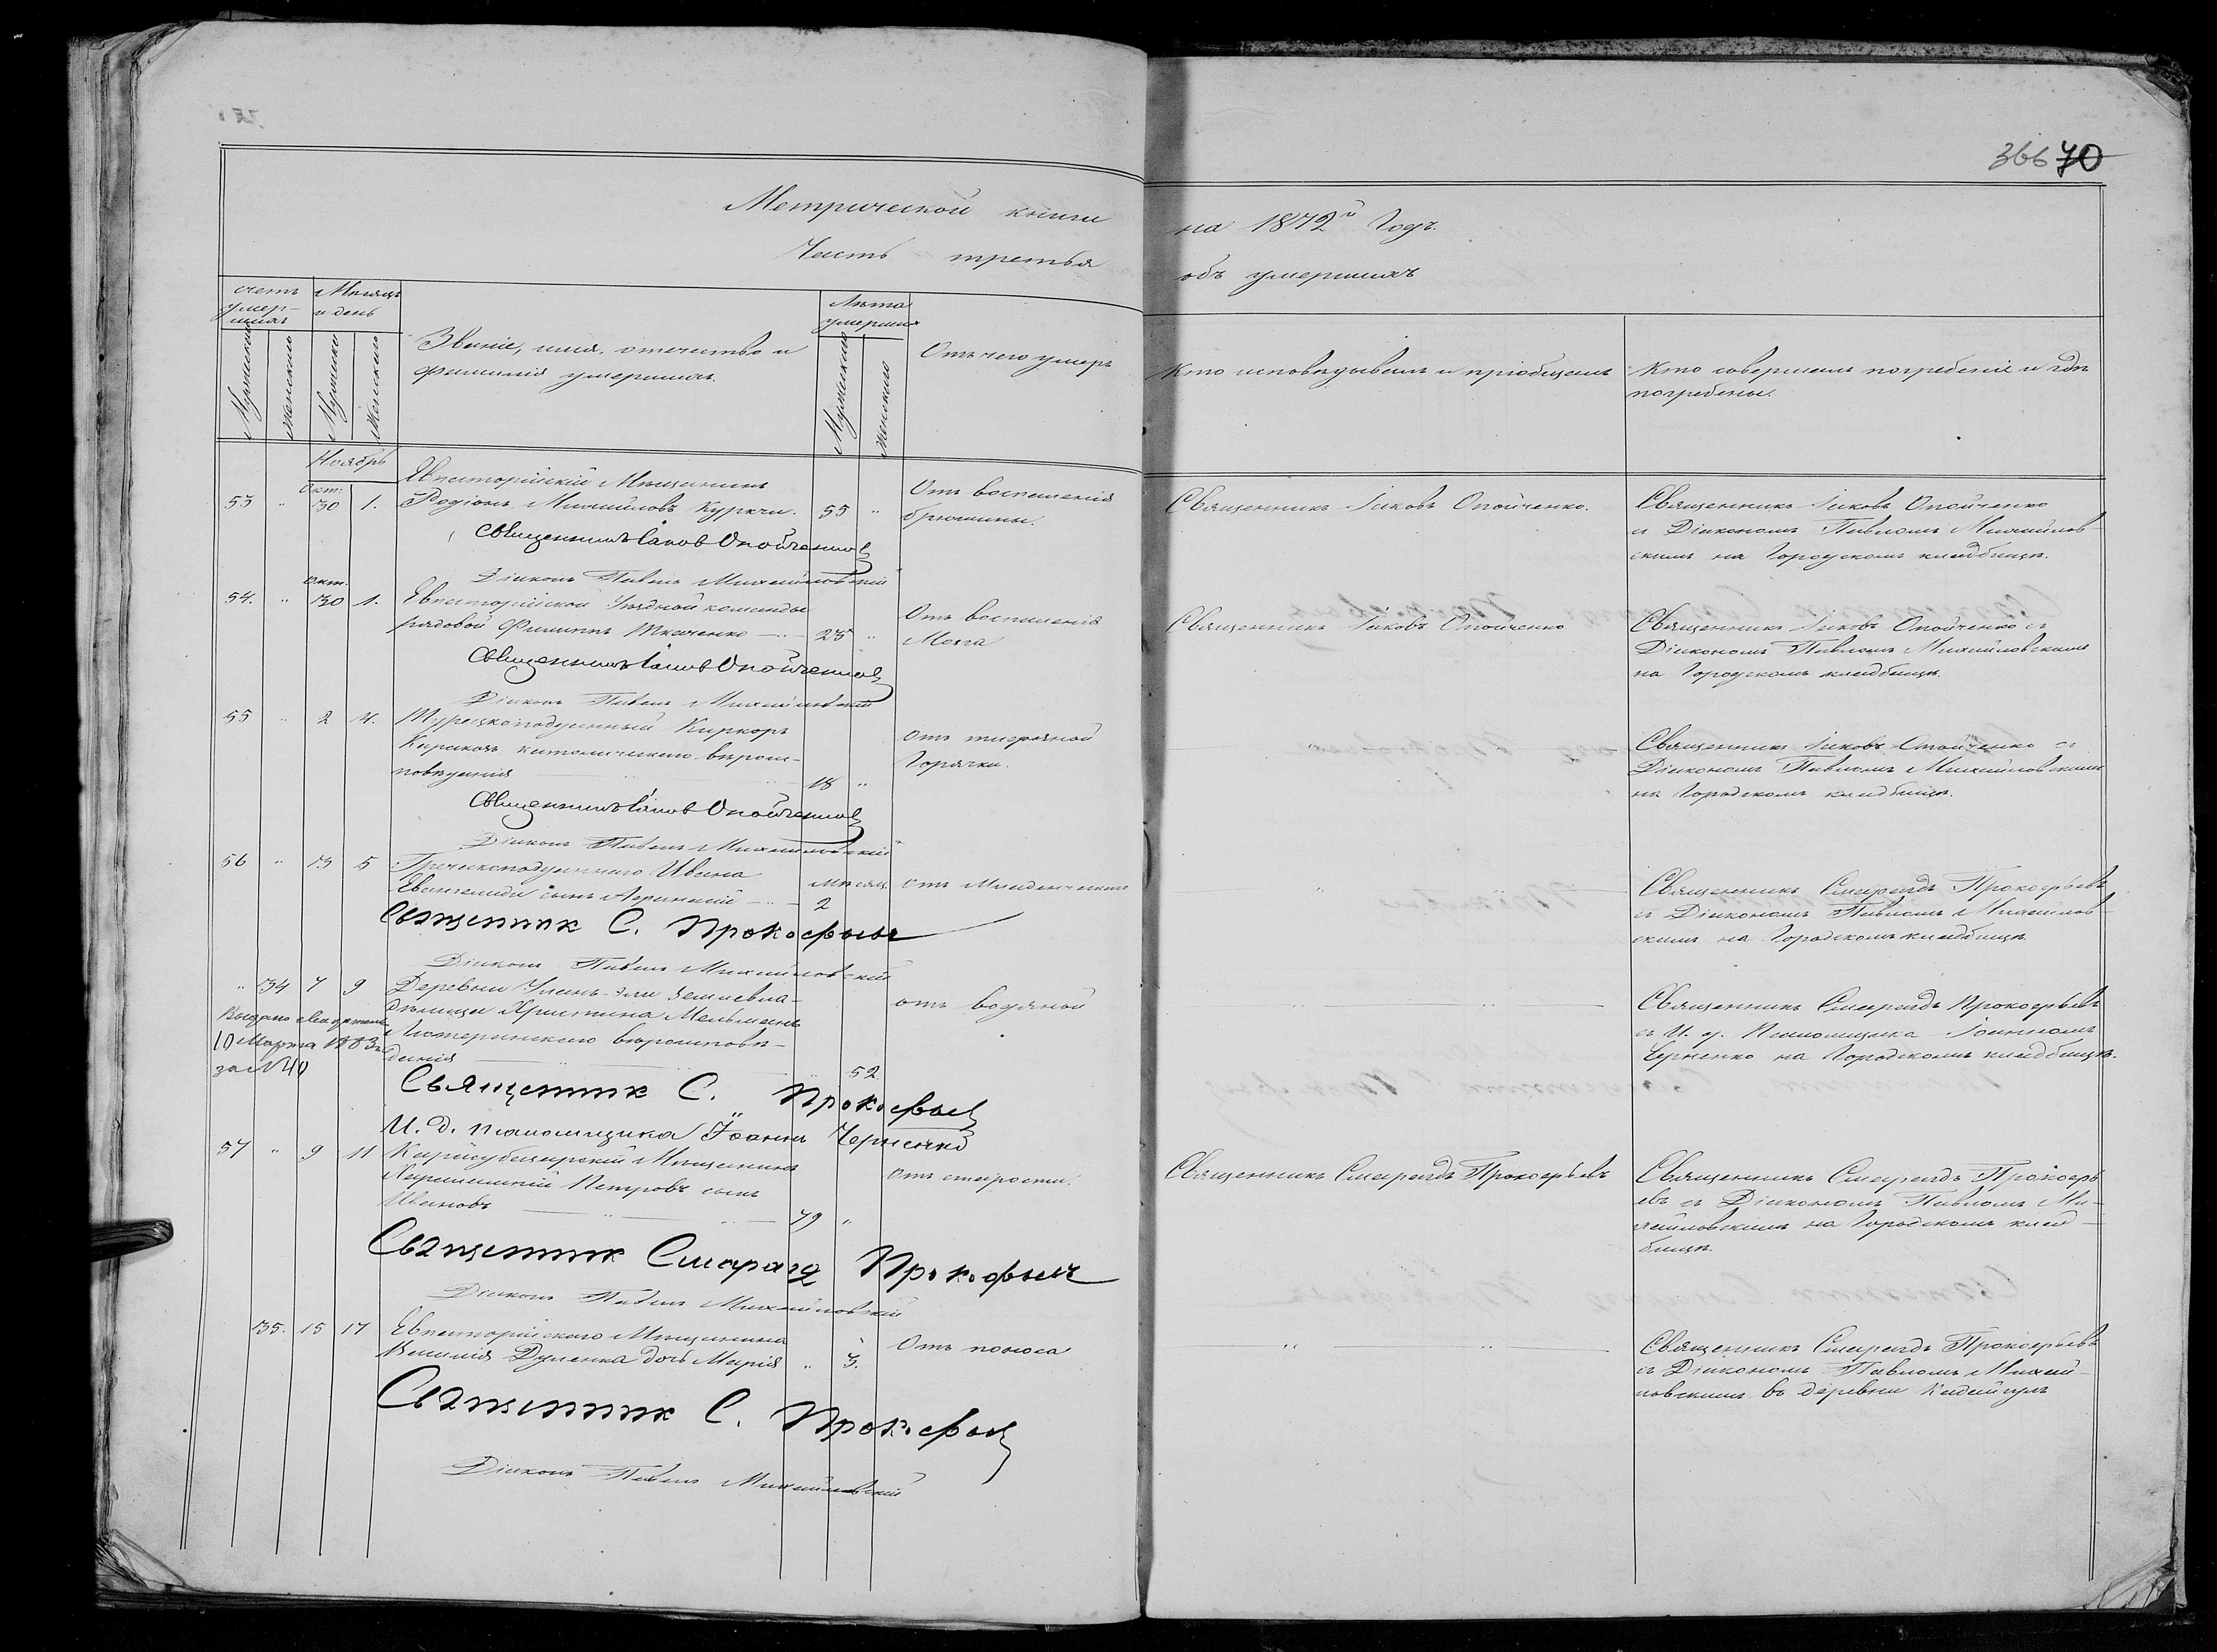 366 70
Метрической книги на 1872й Годъ.
Часть третья объ умершихъ
счетъ умер-
шихъ
Мужескаго
Женскаго
Мѣсяцъ
и день
Мужеска
Женскаго
Званіе, имя, отечество и
фамилія умершихъ.
Лѣта
умершихъ
Мужескаго
Женскаго
Отъ чего умеръ
Кто исповѣдывалъ и пріобщалъ
Кто совершалъ погребеніе и гдѣ
погребены.
Ноябрь
Окт:
53 " 30 1.
Евпаторійскій Мѣщанинъ
Родіонъ Михайловъ Куркчи. 55 "
Отъ воспаленія
брюшины.
Священникъ Іаковъ Опойченко.
Священникъ Іаковъ Опойченко
съ Діакономъ Павломъ Михайлов-
скимъ на Городскомъ кладбищѣ.
Священникъ Іаковъ Опойченко
Діаконъ Павелъ Михайловскій
Окт.
54. " 30 1.
Евпаторійской Уѣздной команды
рядовой Филиппъ Ткаченко 25 "
Отъ воспаленія
Мозга
Священникъ Іаковъ Опойченко
Священникъ Іаковъ Опойченко съ
Діакономъ Павломъ Михайловскимъ
на Городскомъ кладбищѣ.
Священникъ Іаковъ Опойченко
Діаконъ Павелъ Михайловскій
55 " 2 4.
Турецкоподданный Киркоръ
Киракозъ католическаго вѣроис-
повѣданія 18 "
Отъ тифозной
Горячки.
Священникъ Іаковъ Опойченко съ
Діакономъ Павломъ Михайловскимъ
на Городскомъ кладбищѣ.
Священникъ Іаковъ Опойченко
Діаконъ Павелъ Михайловскій
56 " 3 5
Греческоподданнаго Ивана
Евангелиди сынъ
Мѣсяц.
2
Отъ Младенческой
Священникъ Смарагдъ Прокофьевъ
съ Діакономъ Павломъ Михайлов-
скимъ на Городскомъ кладбищѣ
Священникъ С. Прокофьевъ
Діаконъ Павелъ Михайловскій
" 34 7 9
Деревни землевла-
дѣлица Христина Мельманъ
Лютеранскаго вѣроисповѣ-
данія 52
отъ водяной
Выдано
10 Марта 1883 г.
за № 40
Священникъ Смарагдъ Прокофьевъ
съ И. д. Псаломщика Іоанномъ
Черненко на Городскомъ кладбищѣ.
Священникъ С. Прокофьевъ
И. д. псаломщика Іоаннъ Черненко
57 " 9 11
Карасубазарскій Мѣщанинъ
Харлампій Петровъ сынъ
Ивановъ 79 "
Отъ старости.
Священникъ Смарагдъ Прокофьевъ
Священникъ Смарагдъ Прокофь
евъ съ Діакономъ Павломъ Ми-
хайловскимъ на Городскомъ клад-
бищѣ.
Священникъ Смарагд Прокофьевъ
Діаконъ Павелъ Михайловскій
35. 15 17
Евпаторійскаго Мѣщанина
Василія Думенка дочь Марія " 3.
Отъ поноса
Священникъ Смарагдъ Прокофьевъ
съ Діакономъ Павломъ Михай-
ловскимъ въ деревни
Священникъ С. Прокофьевъ
Діаконъ Павелъ Михайловскій